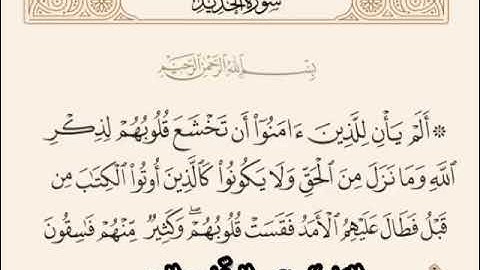 سُورَةُ الْحَدِيدِ
بِسْمِ اللَّهِ الرَّحْمَٰنِ الرَّحِيمِ
۞ أَلَمْ يَأْنِ لِلَّذِينَ ءَامَنُوٓا۟ أَن تَخْشَعَ قُلُوبُهُمْ لِذِكْرِ
ٱللَّهِ وَمَا نَزَلَ مِنَ ٱلْحَقِّ وَلَا يَكُونُوا۟ كَٱلَّذِينَ أُوتُوا۟ ٱلْكِتَٰبَ مِن
قَبْلُ فَطَالَ عَلَيْهِمُ ٱلْأَمَدُ فَقَسَتْ قُلُوبُهُمْ ۖ وَكَثِيرٌ مِّنْهُمْ فَٰسِقُونَ